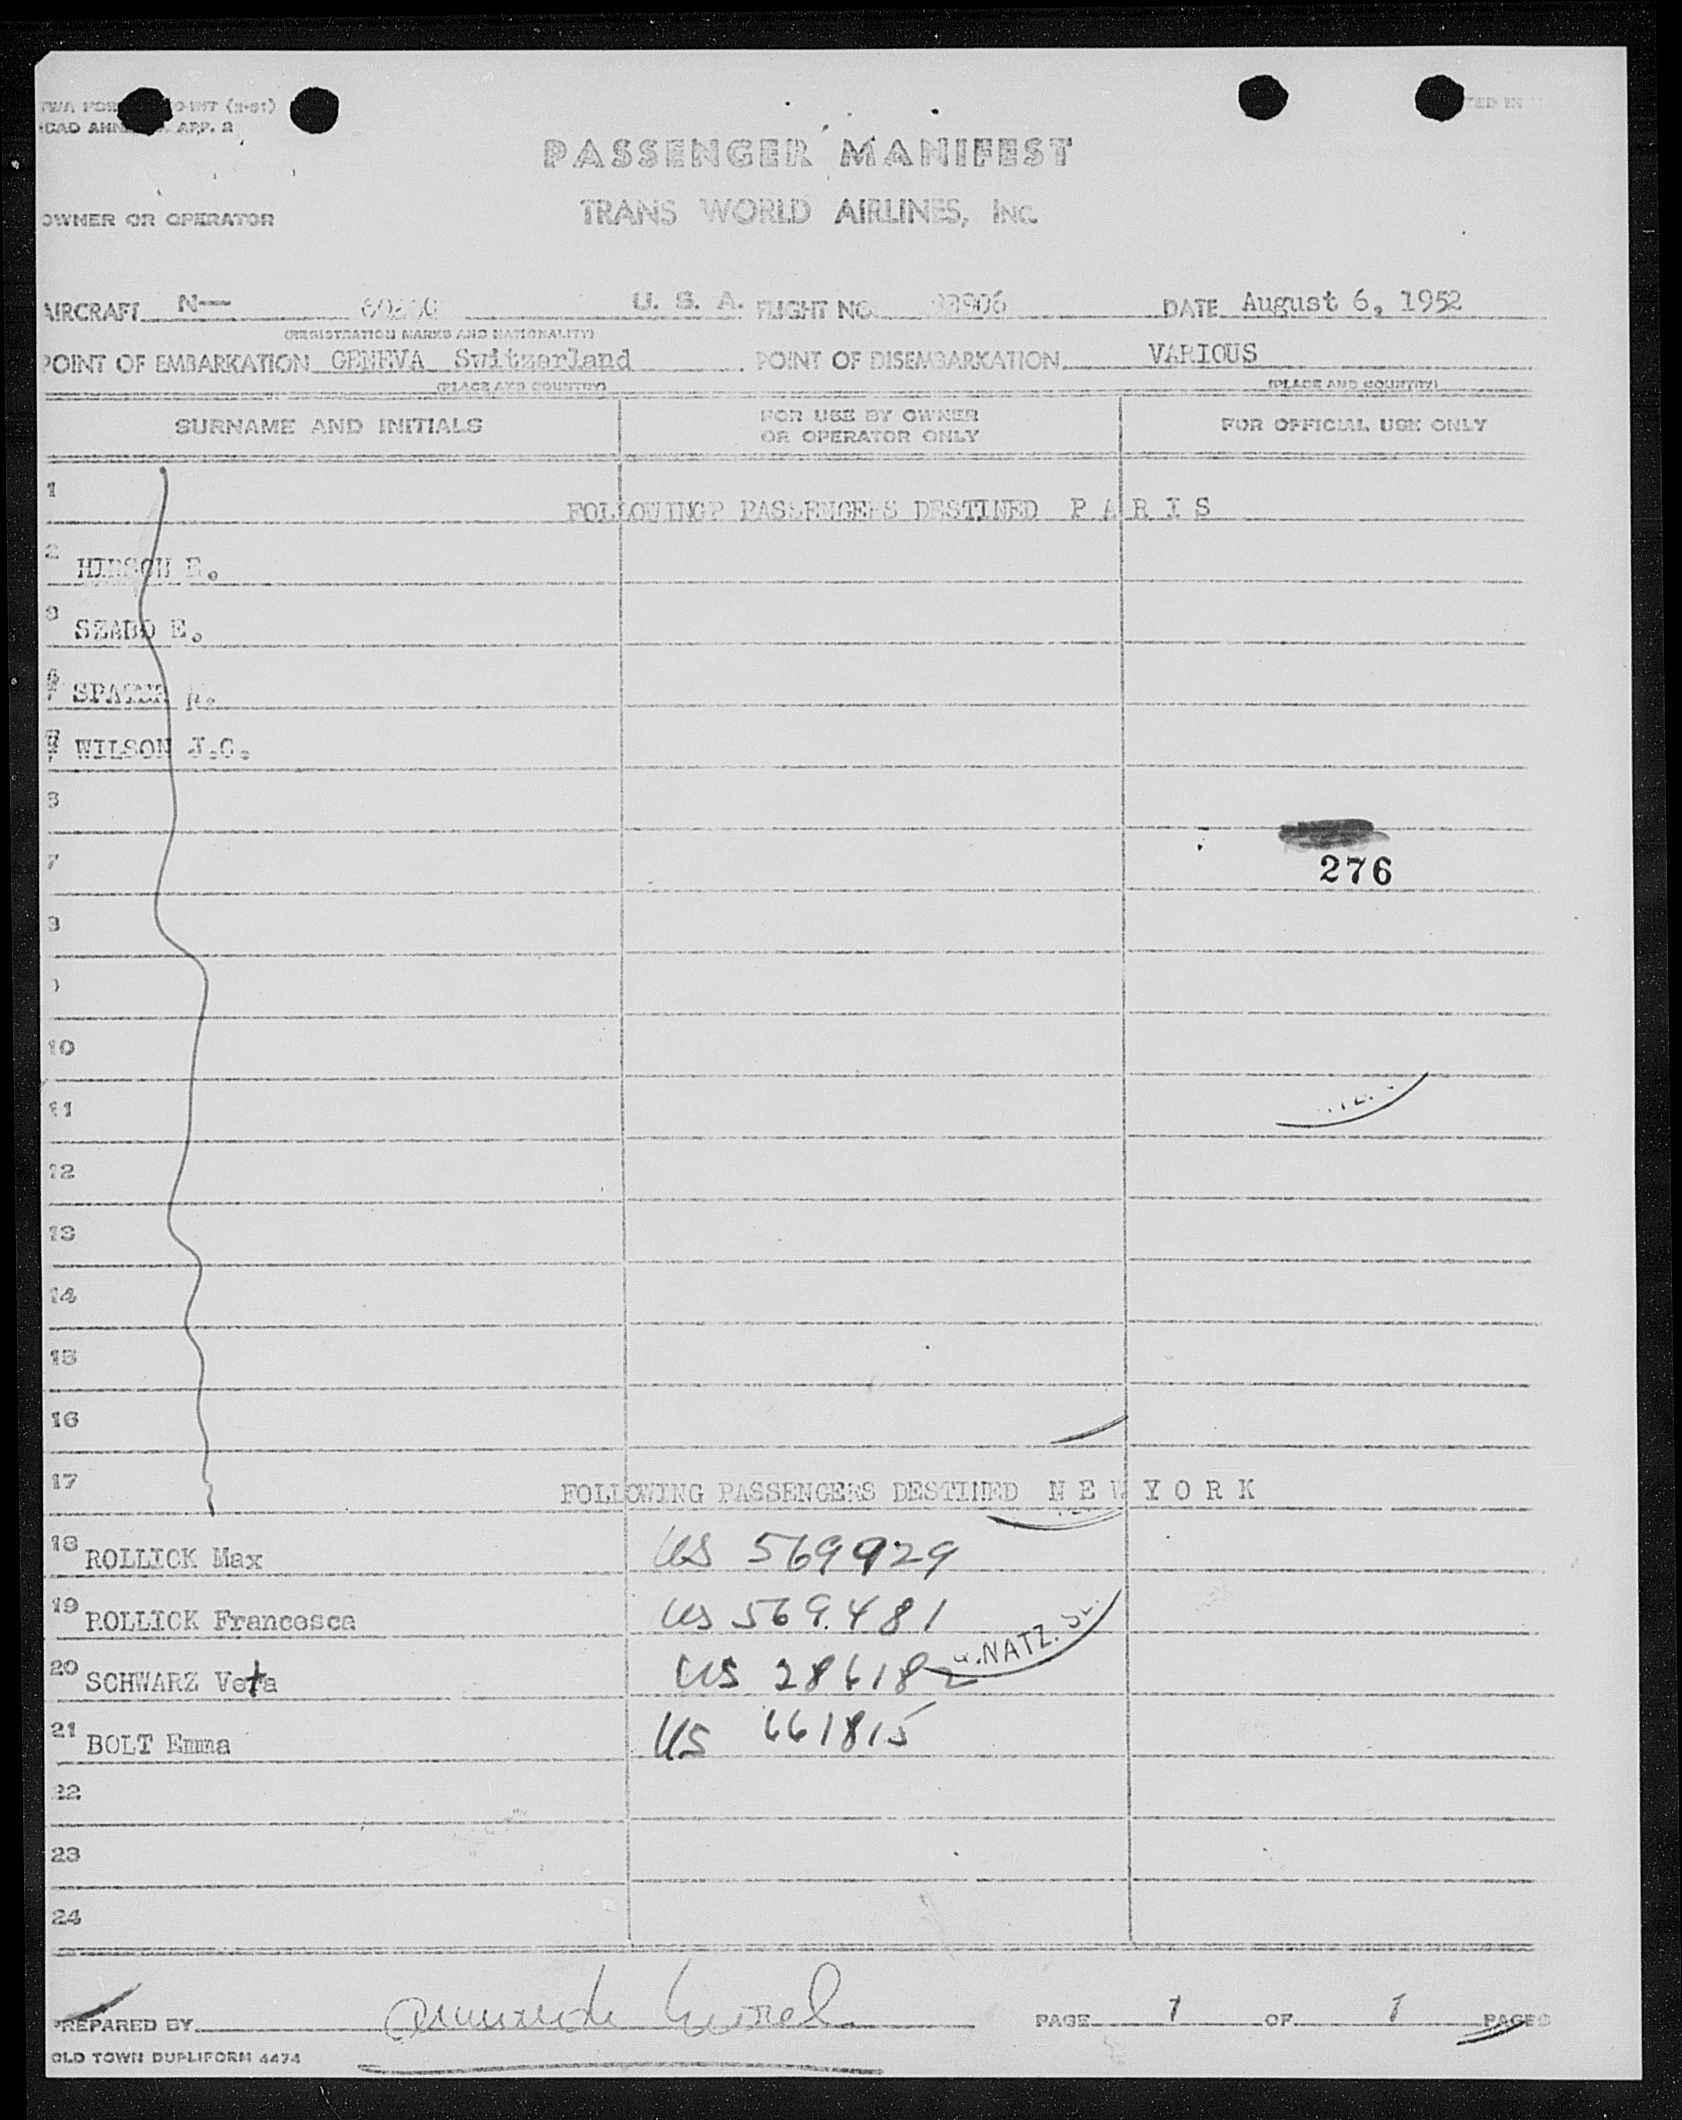 OINT (2-51)
APP. 2
PASSENGER MANIFEST
OWNER OR OPERATOR
TRANS WORLD AIRLINES, INC.
AIRCRAFT N— U. S. A. FLIGHT NO. DATE August 6, 1952
(REGISTRATION MARKS AND NATIONALITY)
POINT OF EMBARKATION GENEVA Switzerland POINT OF DISEMBARKATION VARIOUS
(PLACE AND COUNTRY) (PLACE AND COUNTRY)
SURNAME AND INITIALS FOR USE BY OWNER OR OPERATOR ONLY FOR OFFICIAL USE ONLY
1 FOLLOWING? PASSENGERS DESTINED P A R I S
2 HIRSCH E.
3 SZABO E.
SPATER
WILSON J.C.
6
7 276
8
10
11
12
13
14
15
16
17 FOLLOWING PASSENGERS DESTINED N E W Y O R K
18 ROLLICK Max US 569929
19 ROLLICK Francesca US 569481
20 SCHWARZ Vera US 286182
NATZ.
21 BOLT Emma US 661815
22
23
24
PREPARED BY PAGE 1 OF 1 PAGES
OLD TOWN DUPLIFORM 4474